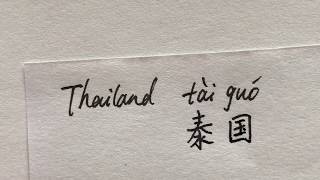 Thailand tài guó
泰国